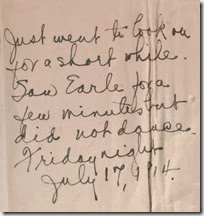 Just went to look on
for a short while.
Saw Earle for a
few minutes but
did not dance.
Friday night
July 17, 1914.